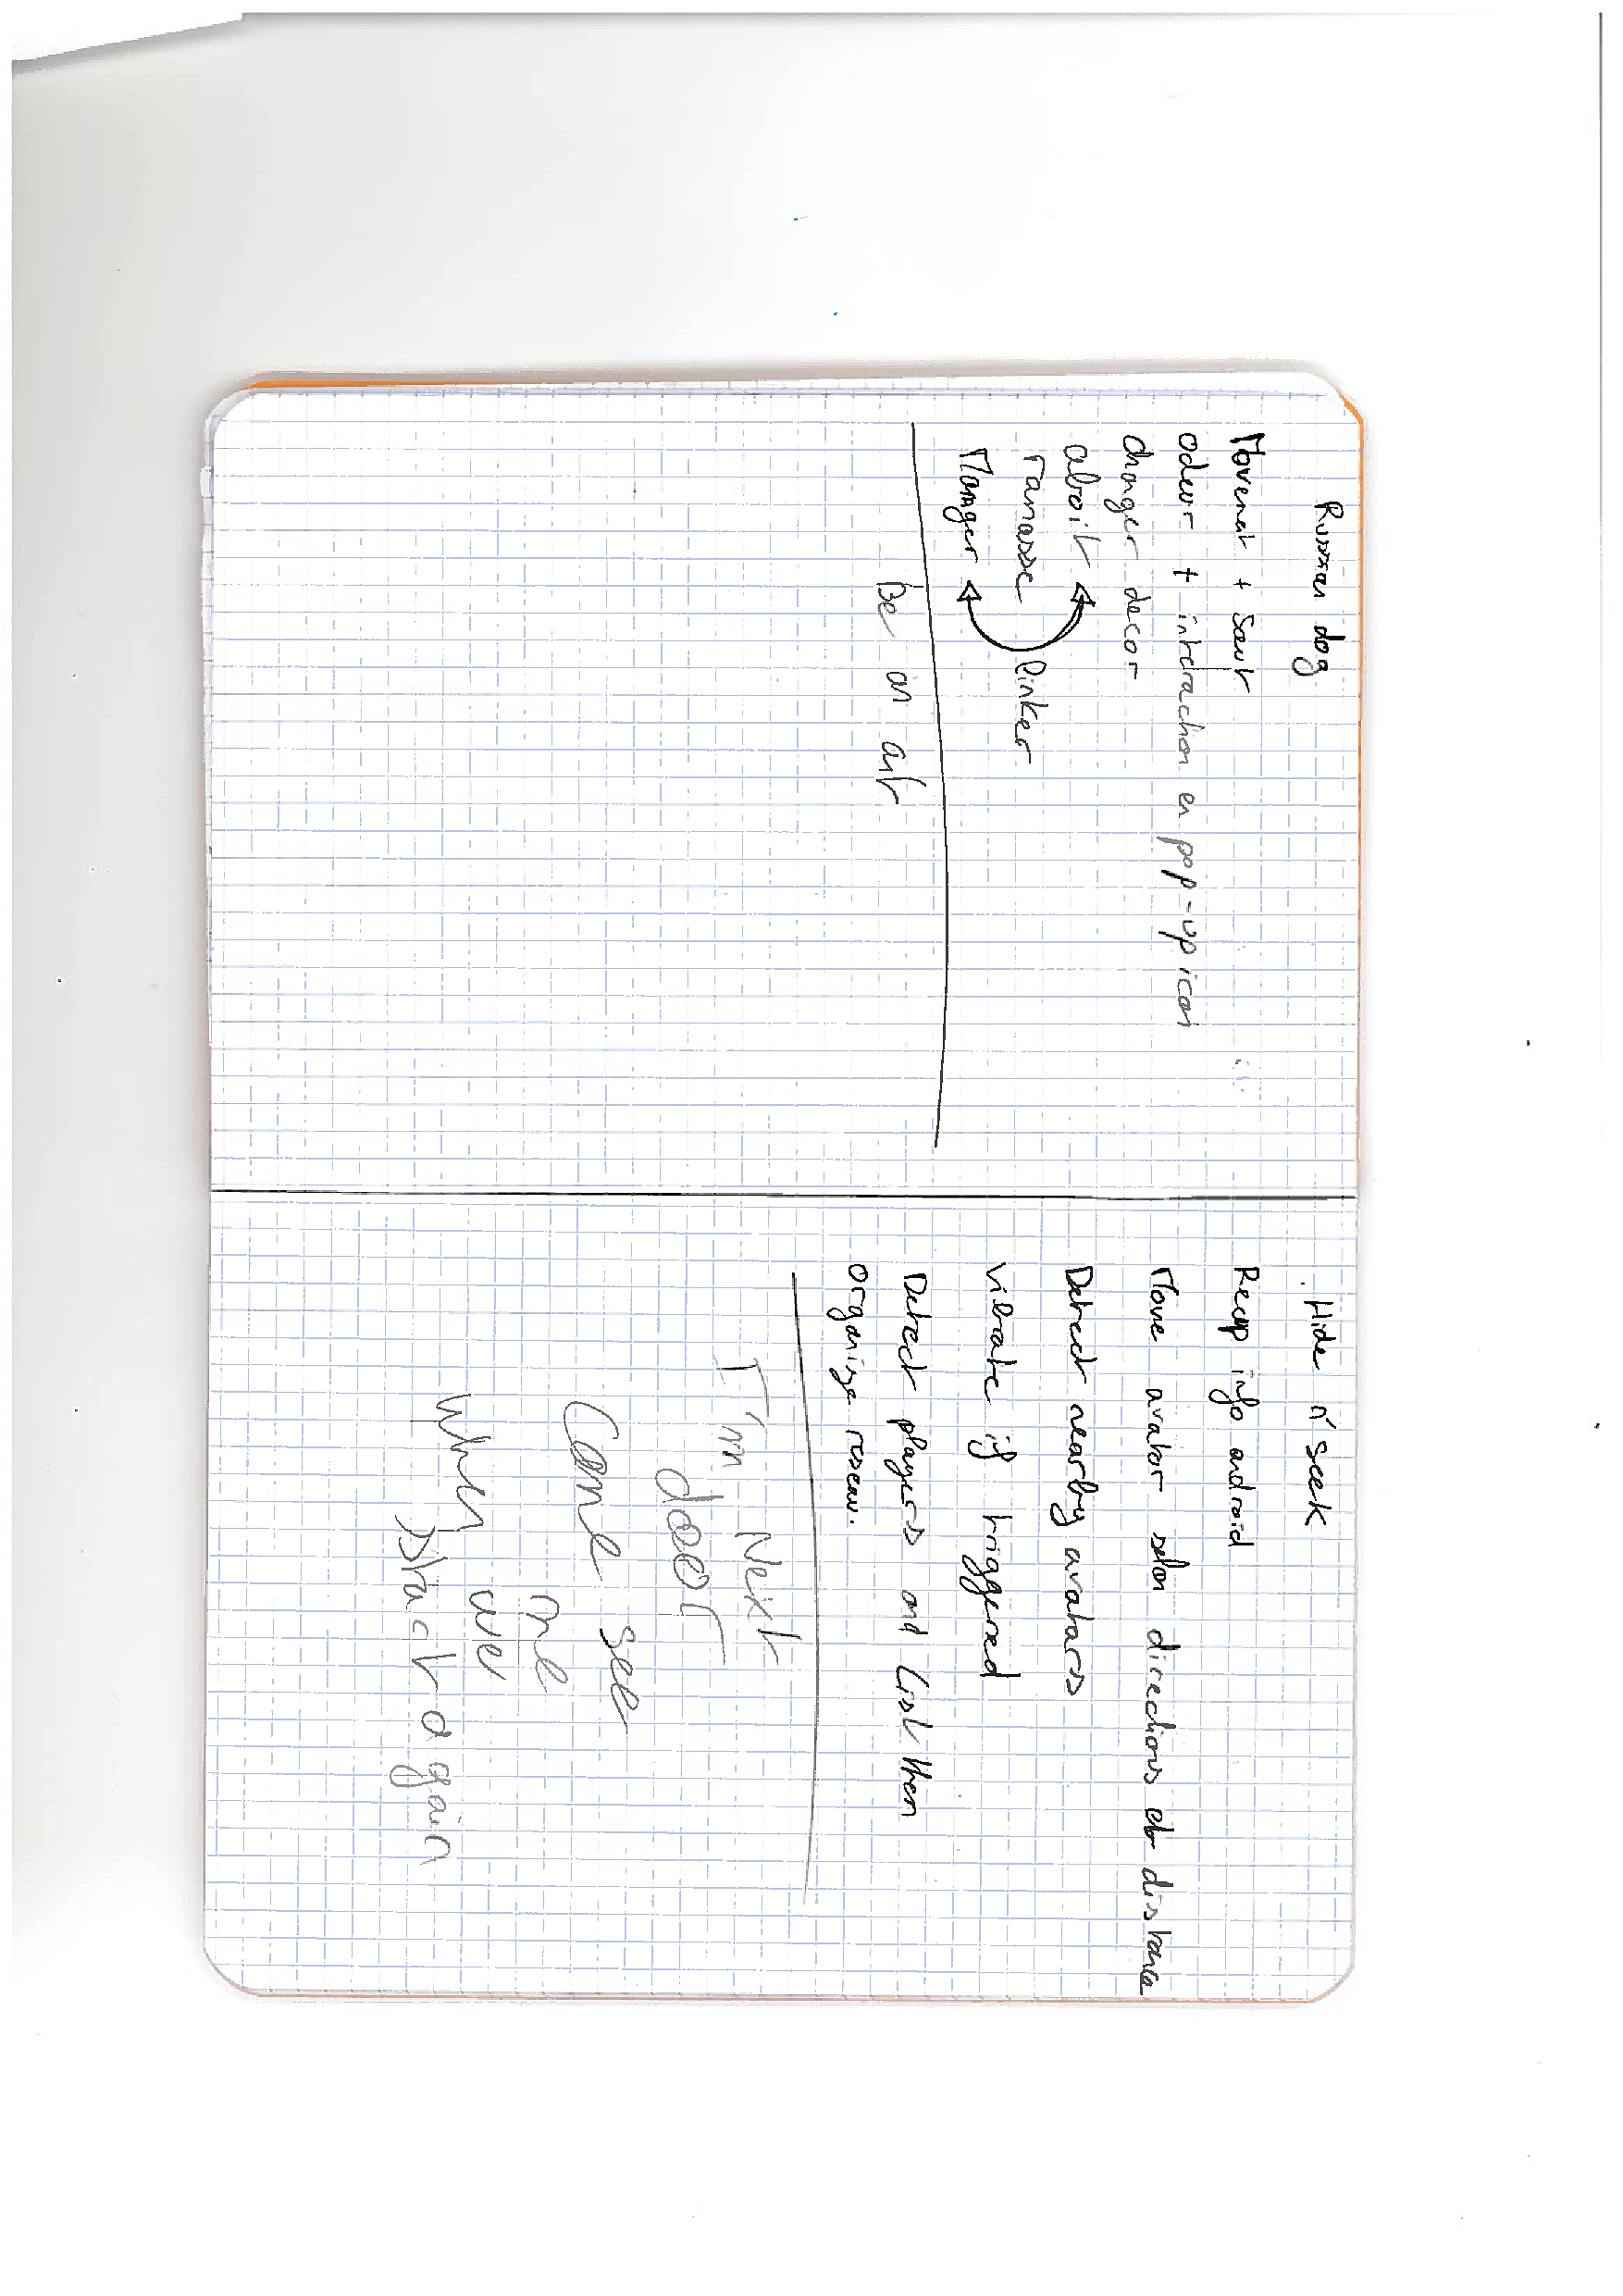 Russian dog
Movement + Saut
odeur + interaction en pop-up icon
changer decor
aboit
ramasse linker
Manger
Be an ant
Hide n' Seek
Recup info android
Move avatar selon directions et distance
Detect nearby avatars
Vibrate if triggered
Detect players and list them
organize reseau.
I'm Next
door
Come see
me
When we
again